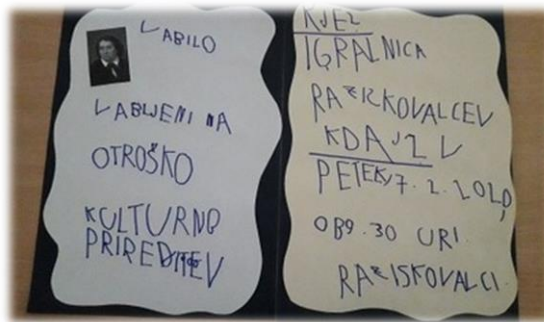 VABILO
VABLJENI NA
OTROŠKO
KULTURNO
PRIREDITEV
KJE?
IGRALNICA
RAZISKOVALCEV
KDAJ? V
PETEK, 7. 2. 2020,
OB 9.30 URI.
RAZISKOVALCI.